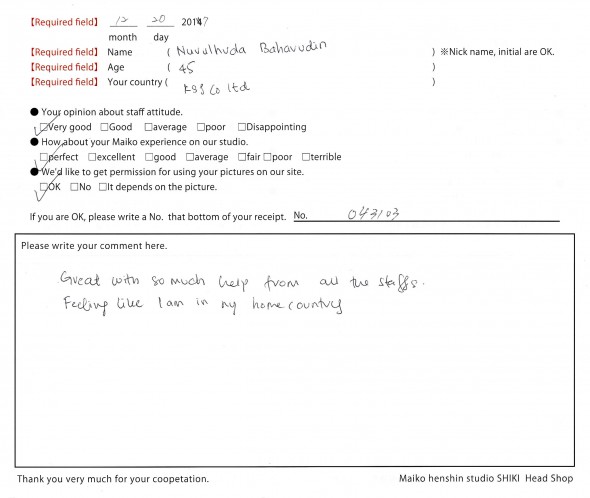 【Required field】 12 20 2017
month day
【Required field】 Name ( Nurulhuda Baharudin ) ※Nick name, initial are OK.
【Required field】 Age ( 45 )
【Required field】 Your country ( Co ltd )
● Your opinion about staff attitude.
□Very good □Good □average □poor □Disappointing
● How about your Maiko experience on our studio.
□perfect □excellent □good □average □fair □poor □terrible
● We'd like to get permission for using your pictures on our site.
□OK □No □It depends on the picture.
If you are OK, please write a No. that bottom of your receipt. No. 043103
Please write your comment here.
Great with so much help from all the staffs.
Feeling like I am in my home country
Thank you very much for your coopetation. Maiko henshin studio SHIKI Head Shop